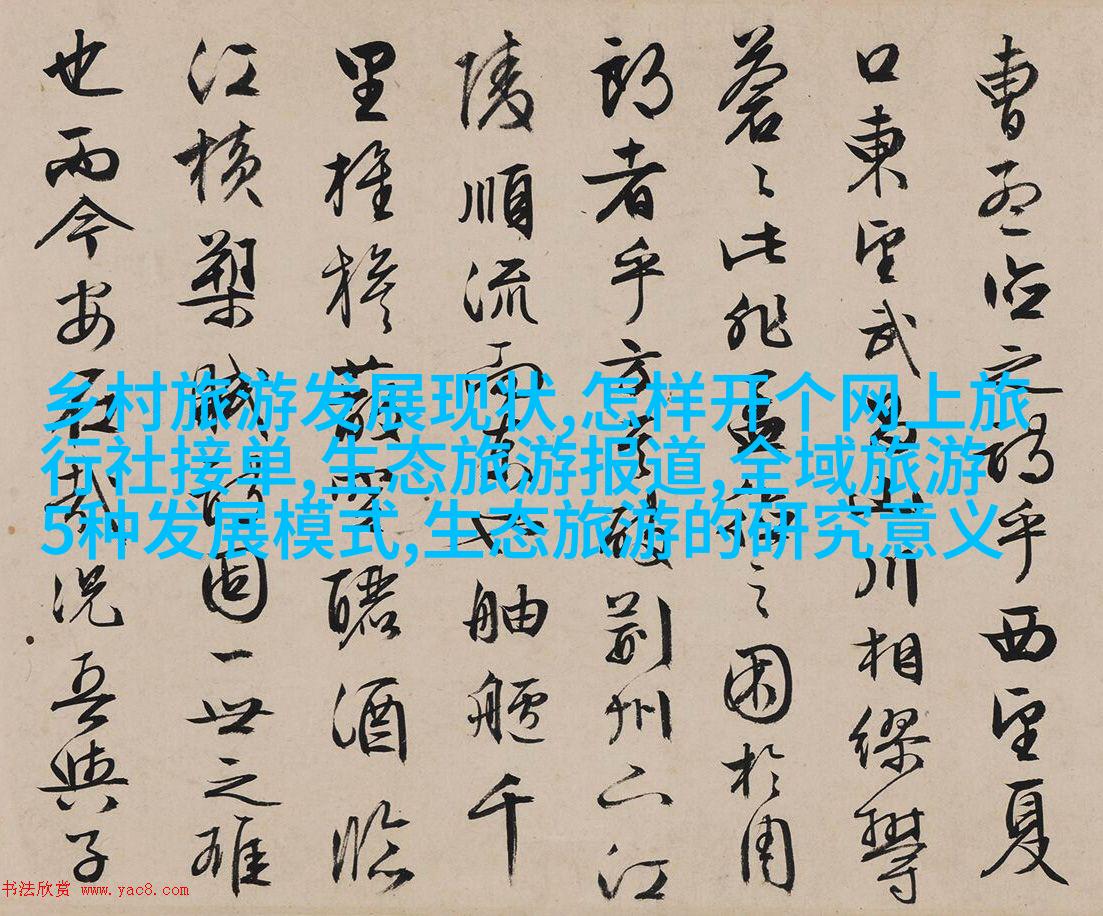 曹孟德之詩乎西望夏
口東望武昌山川相繆鬱
蒼〻此非孟德之困於周
郎者乎方其破荊州下江
陵順流而東也舳艫千
里旌旗蔽空釃酒臨
江橫槊賦詩固一世之雄
也而今安在哉況吾與子
乡村旅游发展现状,怎样开个网上旅
行社接单,生态旅游报道,全域旅游
5种发展模式,生态旅游的研究意义
书法欣赏 www.yac8.com